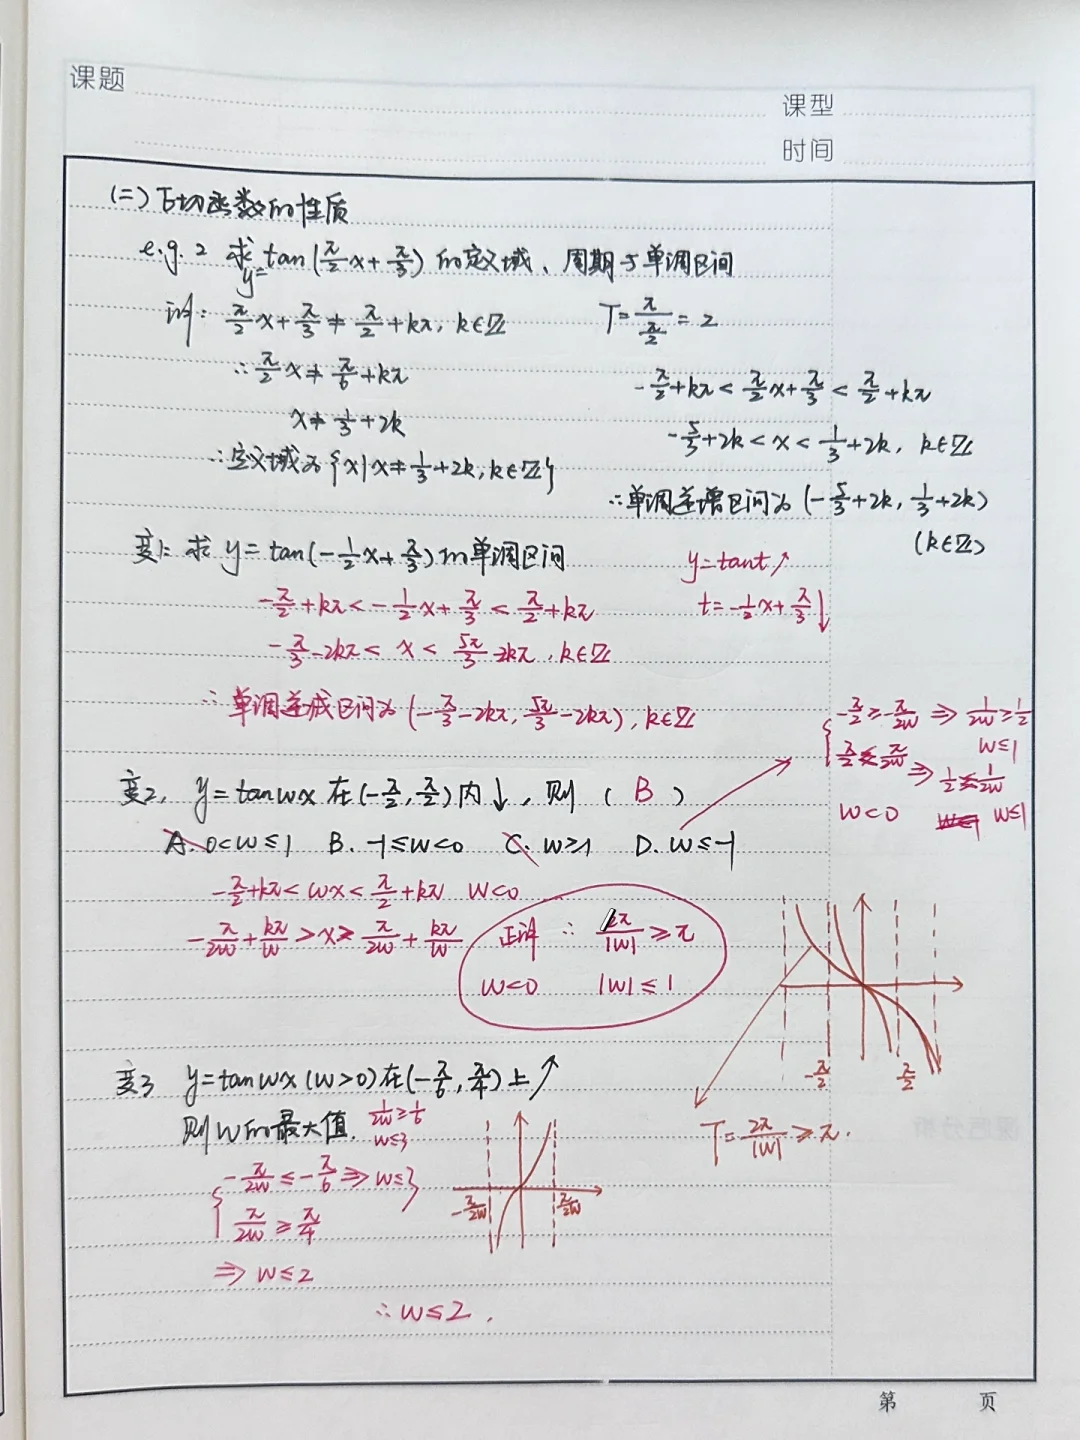 课题
课型
时间
(二) 正切函数的性质
e.g. 2 求 y=tan(π/2 x + π/3) 的定义域、周期与单调区间
解: π/2 x + π/3 ≠ π/2 + kπ, k∈Z
∴ π/2 x ≠ π/6 + kπ
x ≠ 1/3 + 2k
∴定义域为 {x|x≠1/3+2k, k∈Z}
T = π/(π/2) = 2
-π/2 + kπ < π/2 x + π/3 < π/2 + kπ
-5/3 + 2k < x < 1/3 + 2k, k∈Z
∴单调递增区间为 (-5/3+2k, 1/3+2k)
(k∈Z)
变1: 求 y = tan(-1/2 x + π/3) 的单调区间
-π/2 + kπ < -1/2 x + π/3 < π/2 + kπ
-π/3 - 2kπ < x < 5π/3 - 2kπ, k∈Z
∴ 单调递减区间为 (-π/3 - 2kπ, 5π/3 - 2kπ), k∈Z
y=tant↗
t = -1/2 x + π/3 ↓
变2, y = tanwx 在(-π/2, π/2)内↓, 则 ( B )
A. 0<w≤1 B. -1≤w<0 C. w≥1 D. w≤-1
-π/2 + kπ < wx < π/2 + kπ w<0
-π/2w + kπ/w > x > π/2w + kπ/w
正解 ∴ π/|w| ≥ π
w<0 |w| ≤ 1
-π/2 ≥ -π/2w ⇒ 1/2w ≥ 1/2
w≤1
π/2 ≤ π/2w ⇒ 1/2 ≤ 1/2w
w<0 w≤1
-π/2 π/2
T = 2π/|w| ≥ π.
变3 y=tanwx (w>0) 在(-π/6, π/4)上↗
则w的最大值.
1/2w ≥ 1/6
w≤3
-π/2w ≤ -π/6 ⇒ w≤3
π/2w ≥ π/4
⇒ w≤2
∴ w≤2.
-π/2w π/2w
第 页